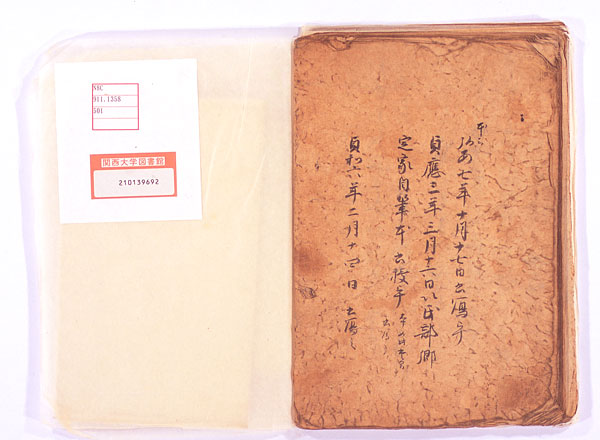 N8C
911.1358
501
関西大学図書館
210139692
弘安七年十月十七日書写了
貞應三年三月十六日以民部卿
定家自筆本書授了
貞和六年二月十四日書写之